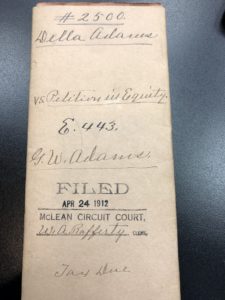 #2500.
Della Adams
vs. Petition in Equity.
E. 443.
G. W. Adams.
FILED
APR 24 1912
McLEAN CIRCUIT COURT,
W. A. Rafferty CLERK.
Tax Due